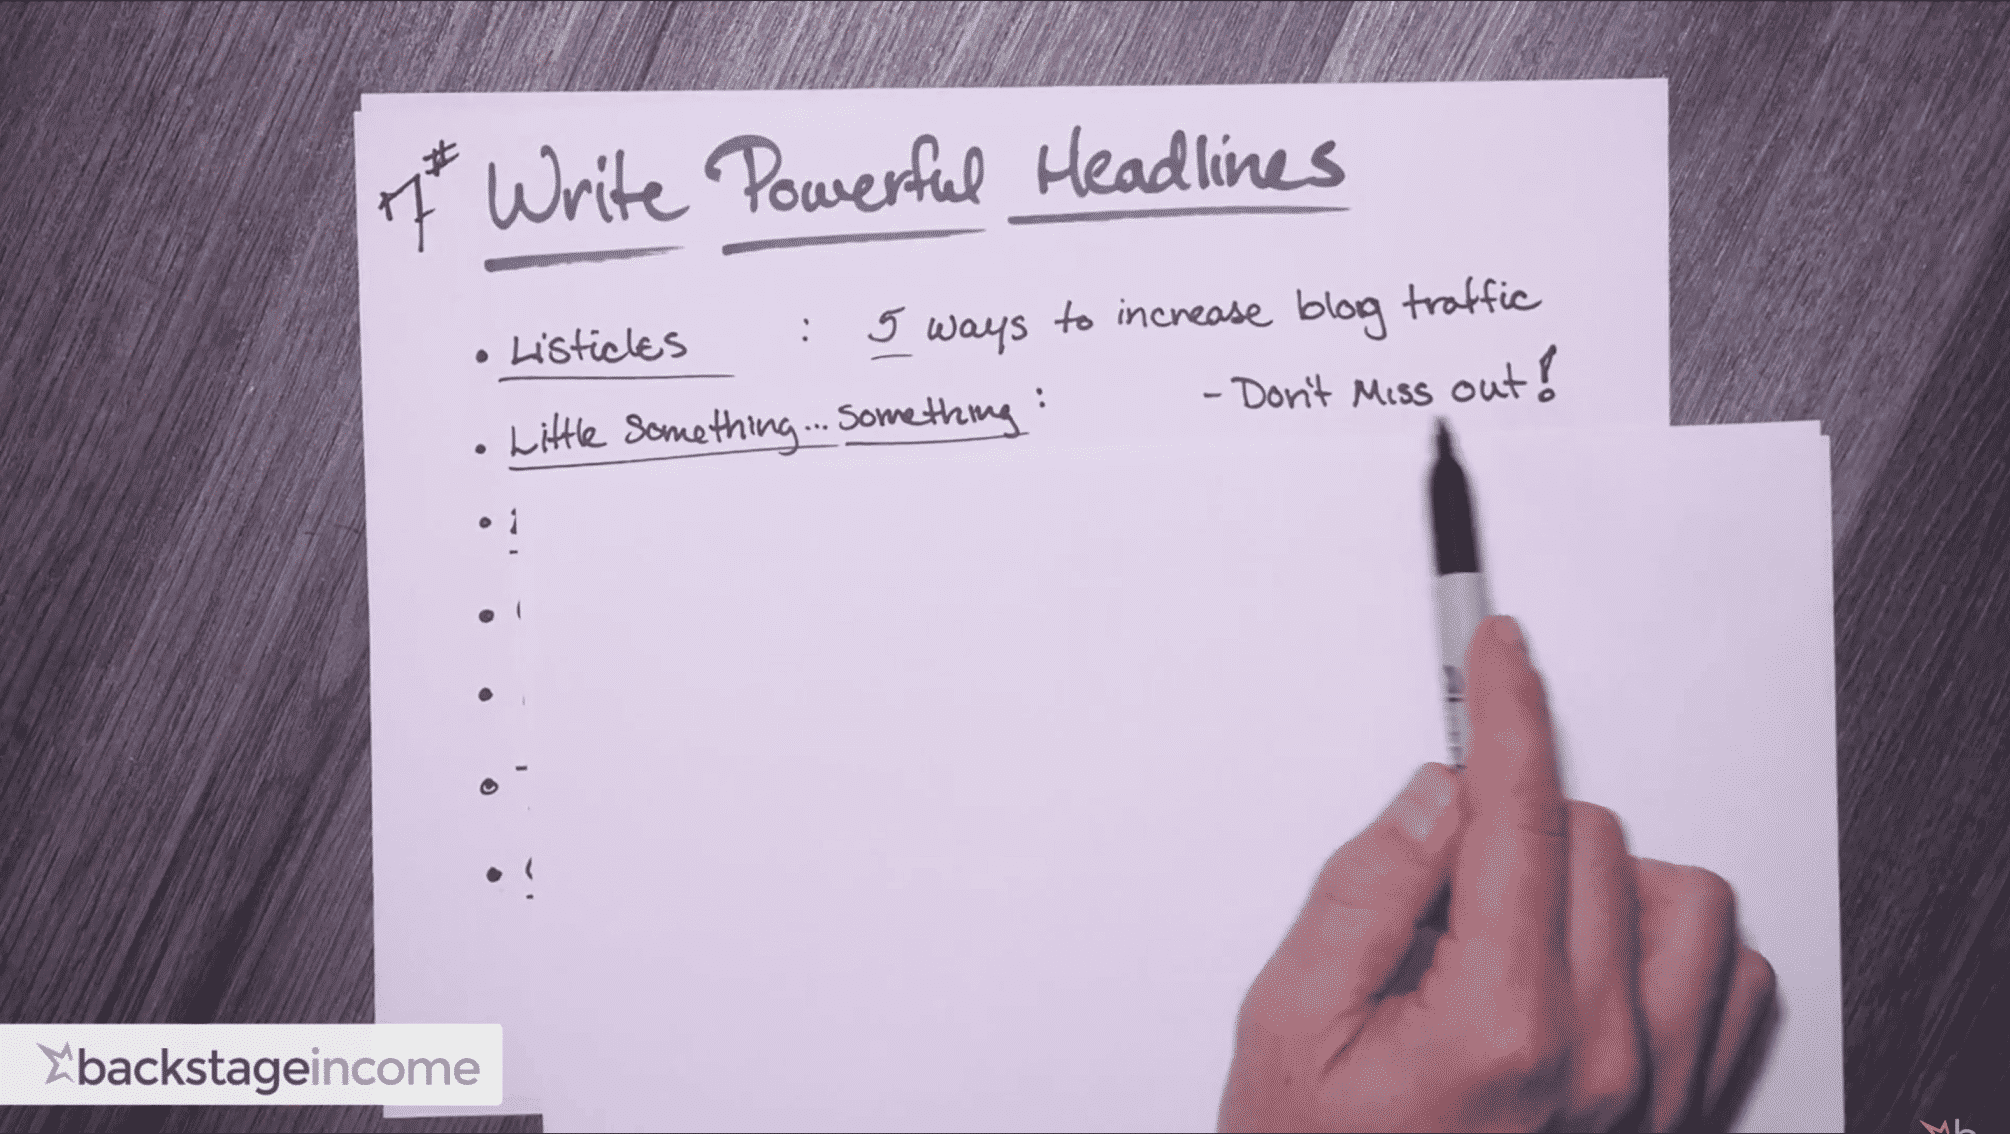 7# Write Powerful Headlines
• Listicles : 5 ways to increase blog traffic
• Little Something... Something : - Don't Miss out!
backstageincome